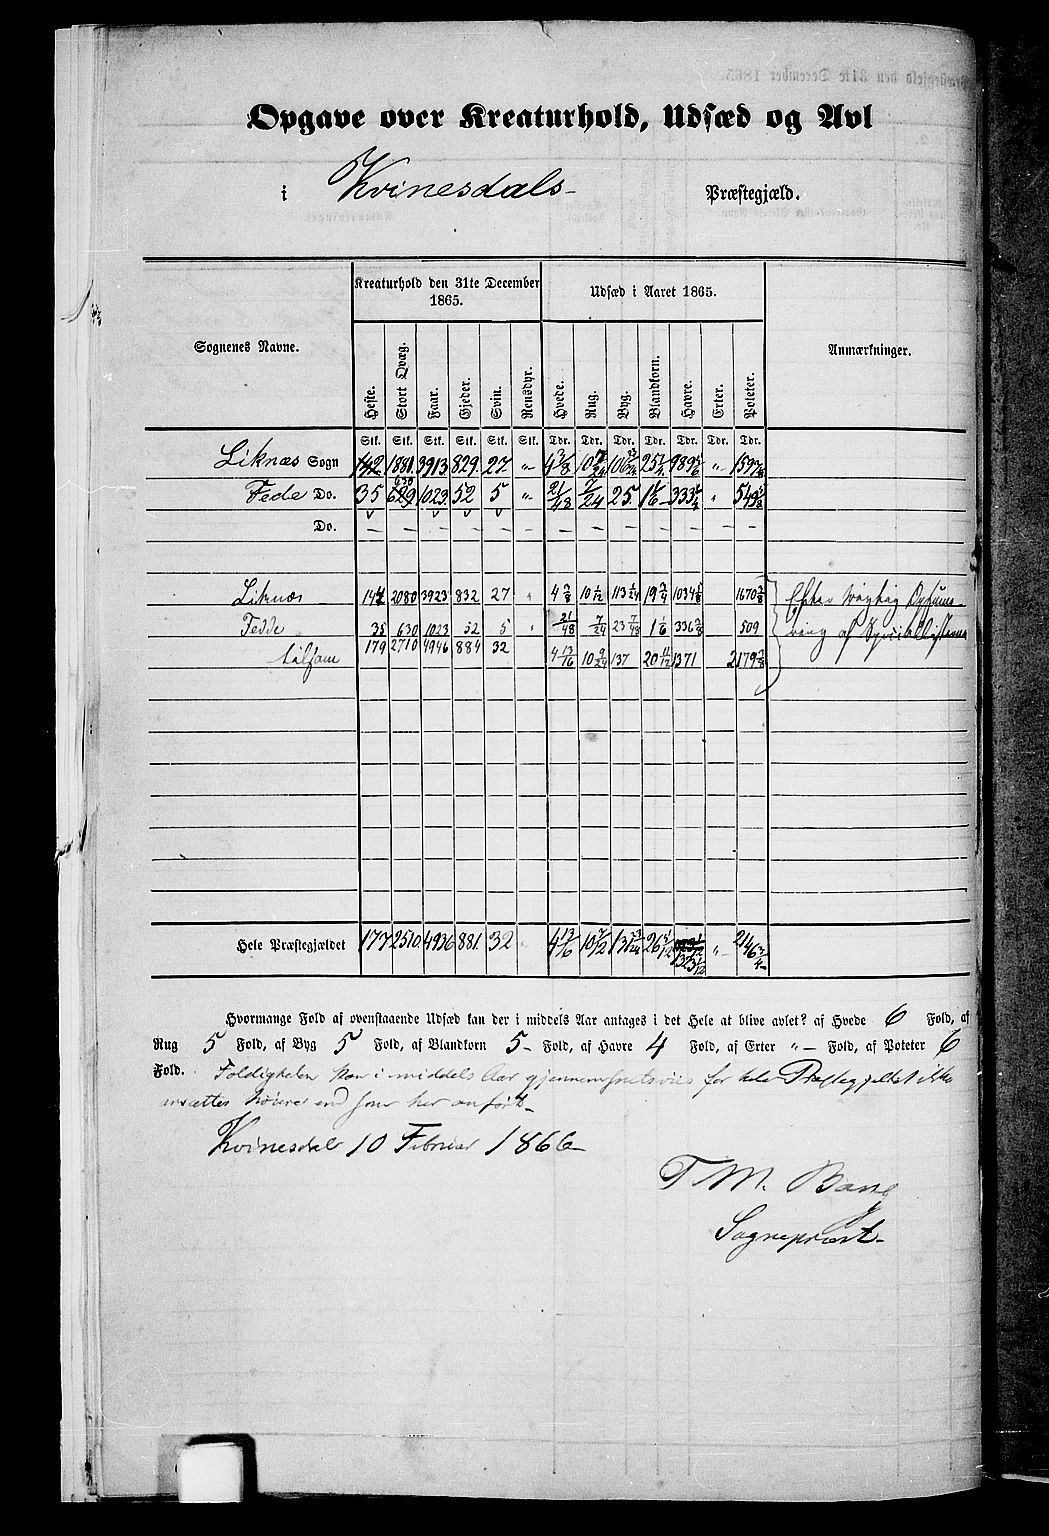 Opgave over Kreaturhold, Udsæd og Avl
i Kvinesdals Præstegjæld.
Sognenes Navne. Kreaturhold den 31te December 1865. Udsæd i Aaret 1865. Anmærkninger.
Heste. Stort Qvæg. Faar. Gjeder. Svin. Rensdyr. Hvede. Rug. Byg. Blandkorn. Havre. Erter. Poteter.
Stk. Stk. Stk. Stk. Stk. Stk. Tdr. Tdr. Tdr. Tdr. Tdr. Tdr. Tdr.
Liknæs Sogn 142 1881. 3913. 829. 27 „
630
Fede Do. 35 629 1023. 52 5 „ 21/48 7/24 25.
Do. — — — — — — — — — — — — —
Liknæs 144 2080 3923 832 27 „ 4 3/8 10 1/12 113 1/24 19 3/4 1034 5/8 1670 3/8 Efter
Fedde 35 630 1023 52 5 „ 21/48 7/24 23 7/48 1 1/6 336 3/8 509 af Speciallisterne
tilsam 179 2710 4946 884 32 4 13/16 10 9/24 137 20 11/12 1371 2179 3/8
Hele Præstegjældet 177 2510 4936 881. 32 „ 4 13/16 10 7/12 131 23/24 26 5/12 „ 2146 3/4
Hvormange Fold af ovenstaaende Udsæd kan der i middels Aar antages i det Hele at blive avlet? af Hvede 6 Fold, af
Rug 5 Fold, af Byg 5 Fold, af Blandkorn 5 Fold, af Havre 4 Fold, af Erter „ Fold, af Poteter 6
Fold. Foldigheden kan i middels Aar gjennemsnitsviis for hele Præstegjeldet ikke
ansættes høiere end som her anført.
Kvinesdal 10 Februar 1866
T M. Bang
Sognepræst.